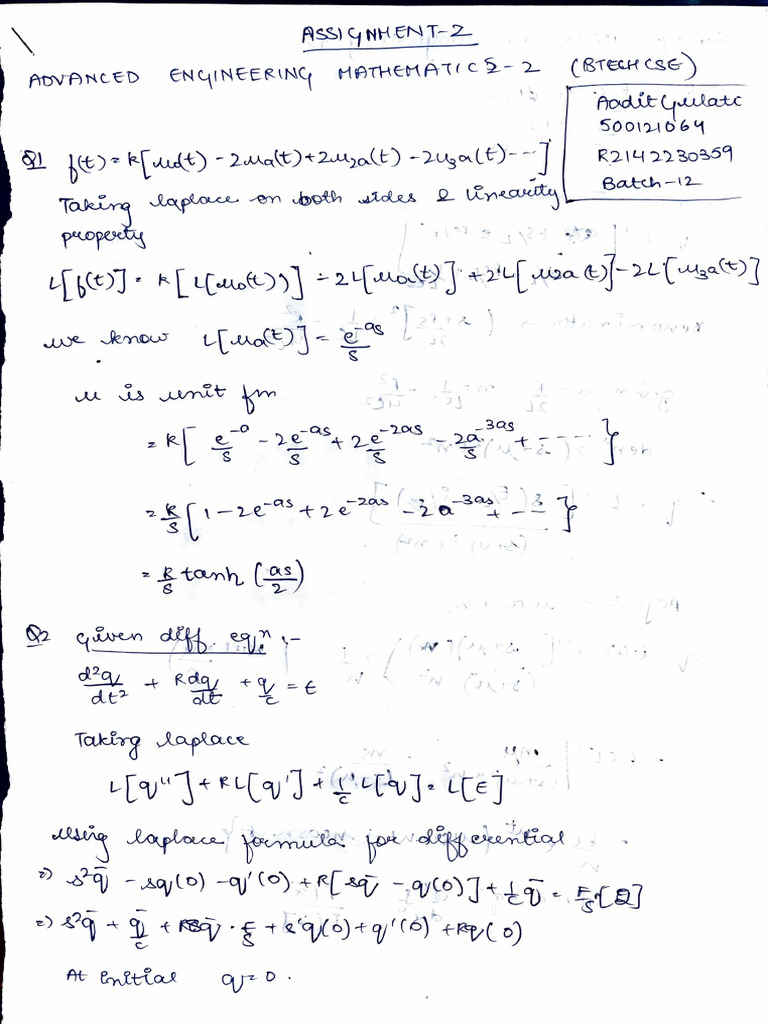 ASSIGNMENT-2
ADVANCED ENGINEERING MATHEMATICS-2 (BTECH CSE)
Aadit Gulati
500121064
R2142230359
Batch-12
Q1 f(t) = K[u0(t) - 2ua(t) + 2u2a(t) - 2u3a(t) ---]
Taking laplace on both sides & linearity
property
L[f(t)] = K[L(u0(t))] - 2L[ua(t)] + 2L[u2a(t)] - 2L[u3a(t)]
we know L[ua(t)] = e^-as/s
u is unit fn
= K[e^-0/s - 2e^-as/s + 2e^-2as/s - 2a^-3as/s + -----}
= K/s[1 - 2e^-as + 2e^-2as - 2a^-3as + --- }
= K/s tanh (as/2)
Q2 Given diff eq.n :-
d²q/dt² + Rdq/dt + q/c = E
Taking laplace
L[q''] + RL[q'] + 1/c L[q] = L[E]
Using laplace formula for differential
=) s²q̄ - sq(0) - q'(0) + R[sq̄ - q(0)] + 1/c q̄ = E/s
=) s²q̄ + q̄/c + Rsq̄ = E/s + s'q(0) + q'(0) + Rq(0)
At initial q=0.